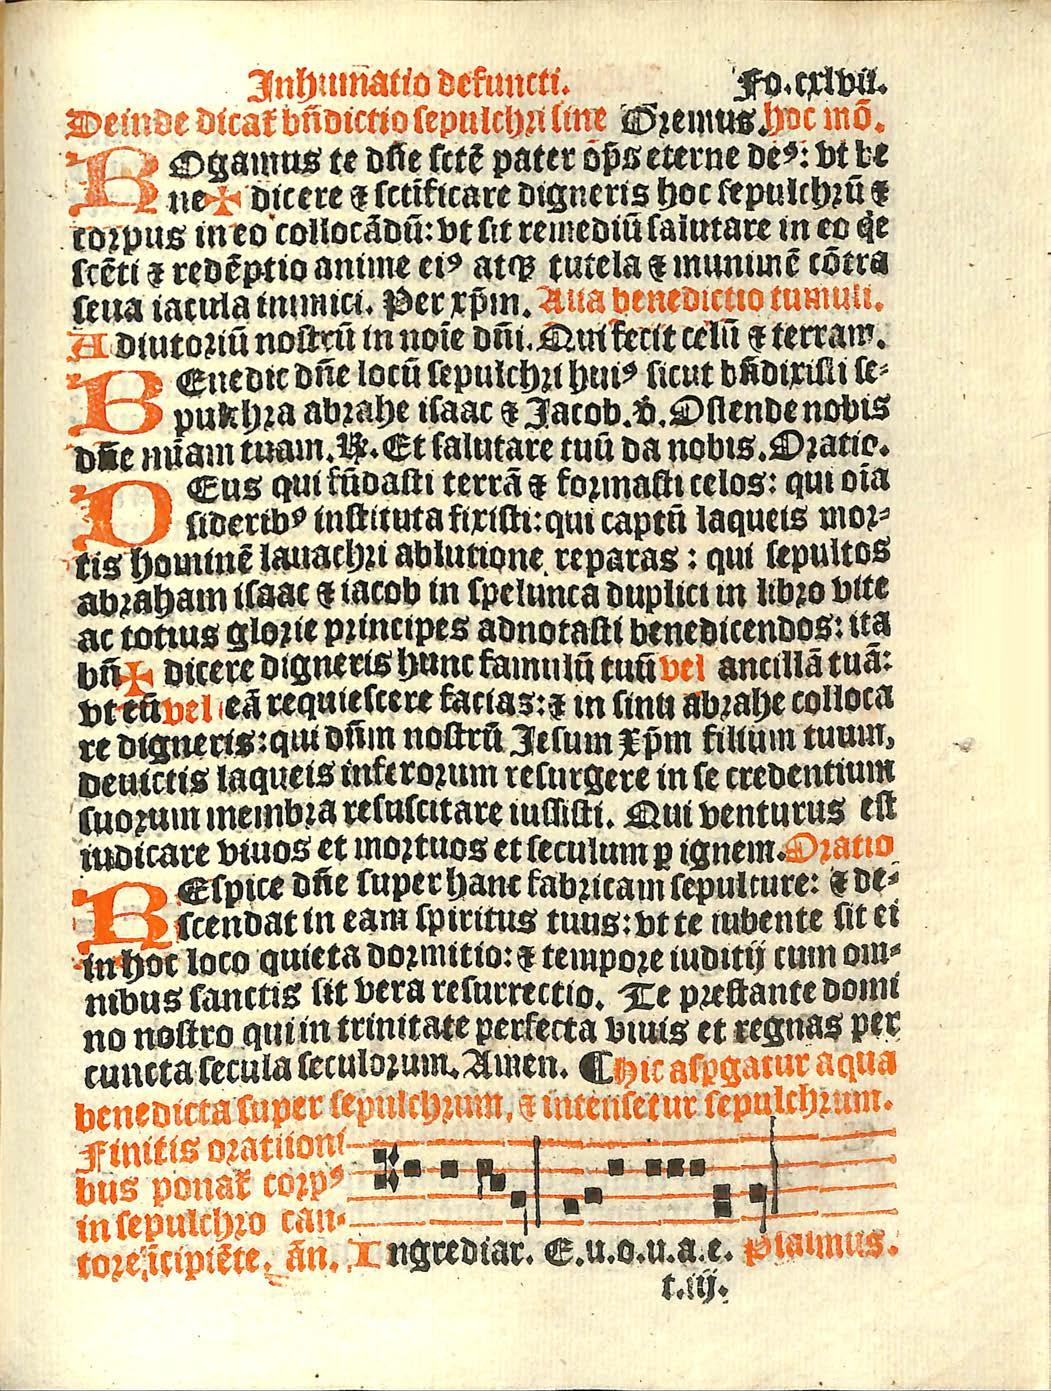 Inhumatio defuncti. Fo.cxlvii.
Deinde dicat᷑ bn̄dictio sepulchri sine Oremus.hoc mō.
ROgamus te dn̄e sctē pater op̄s eterne deꝰ: vt be
ne ✠ dicere ⁊ sctīficare digneris hoc sepulchrū ⁊
corpus in eo collocādū: vt sit remediū salutare in eo q̇e
scēti ⁊ redēptio anime eiꝰ atqꝫ tutela ⁊ munimē cōtra
seua iacula inimici. Per xp̄m. Alia benedictio tumuli.
Adiutoriū nostrū in noīe dn̄i. Qui fecit celū ⁊ terram.
BEnedic dn̄e locū sepulchri huiꝰ sicut bn̄dixisti se-
pulchra abrahe isaac ⁊ Jacob. ℣. Ostende nobis
dn̄e mīam tuam. ℟. Et salutare tuū da nobis. Oratio.
DEus qui fūdasti terrā ⁊ formasti celos: qui oīa
sideribꝰ instituta fixisti: qui captū laqueis mor-
tis hominē lauachri ablutione reparas: qui sepultos
abraham isaac ⁊ iacob in spelunca duplici in libro vite
ac totius glorie principes adnotasti benedicendos: ita
bn̄ ✠ dicere digneris hunc famulū tuū vel ancillā tuā:
vt eū vel eā requiescere facias: ⁊ in sinu abrahe colloca
re digneris: qui dn̄m nostrū Jesum Xp̄m filium tuum,
deuictis laqueis inferorum resurgere in se credentium
suorum membra resuscitare iussisti. Qui venturus est
iudicare viuos et mortuos et seculum ꝑ ignem. Oratio
REspice dn̄e super hanc fabricam sepulture: ⁊ de-
scendat in eam spiritus tuus: vt te iubente sit ei
in hoc loco quieta dormitio: ⁊ tempore iuditij cum om-
nibus sanctis sit vera resurrectio. Te prestante domi
no nostro qui in trinitate perfecta viuis et regnas per
cuncta secula seculorum. Amen. ¶ hic aspgatur aqua
benedicta super sepulchrum, ⁊ intensetur sepulchrum.
Finitis oratiioni
bus ponat᷑ corpꝰ
in sepulchro can-
tore īcipiēte. ān. Ingrediar. E.u.o.u.a.e. Psalmus.
t.iij.